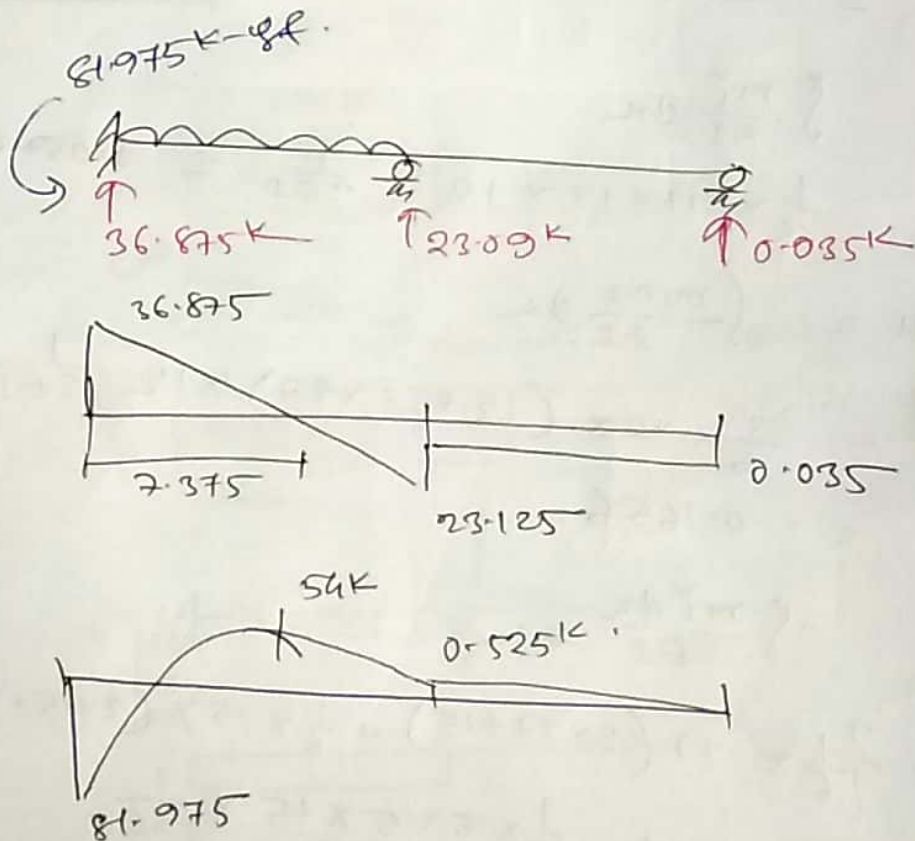 81.975 K-ft.
36.875 K 23.09 K 0.035 K
36.875
7.375 0.035
23.125
54K
0.525 K.
81.975